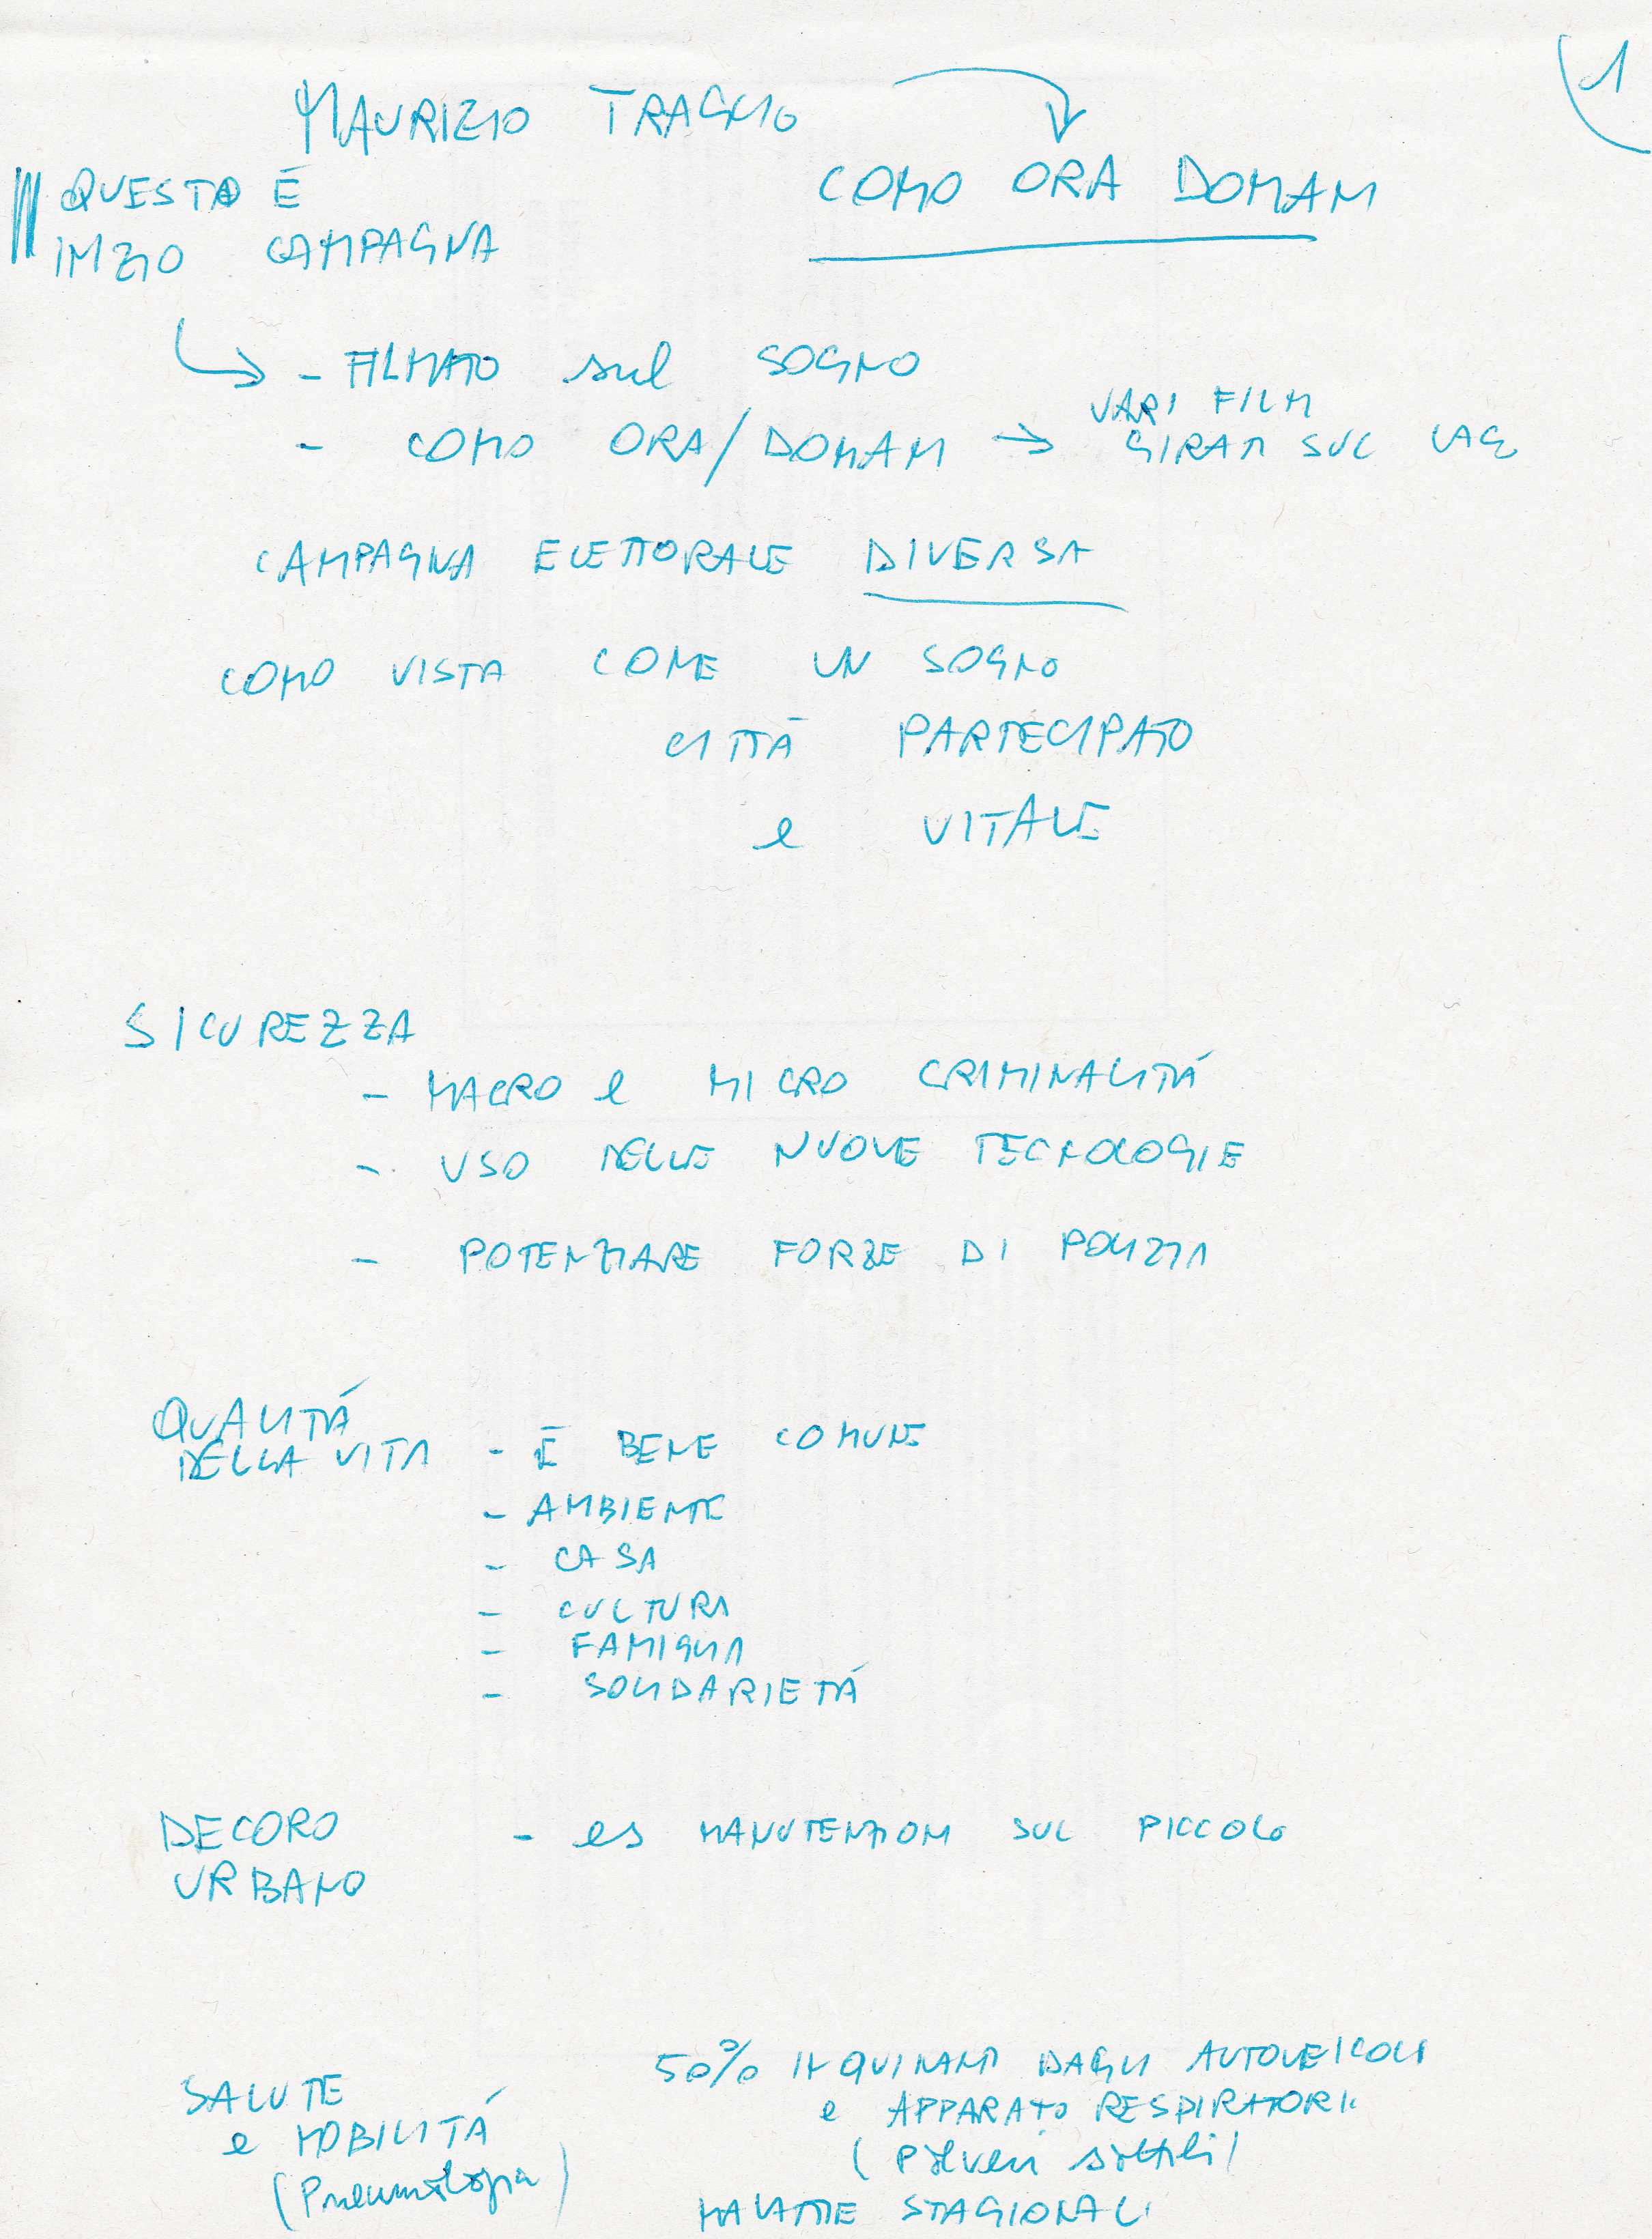 1
MAURIZIO TRAGLIO
COMO ORA DOMANI
QUESTA È
INIZIO CAMPAGNA
- FILMATO sul SOGNO
- COMO ORA/DOMANI → VARI FILM
GIRATI SUL LAGO
CAMPAGNA ELETTORALE DIVERSA
COMO VISTA COME UN SOGNO
CITTÀ PARTECIPATO
e VITALE
SICUREZZA
- MACRO e MICRO CRIMINALITÁ
- USO DELLE NUOVE TECNOLOGIE
- POTENZIARE FORZE DI POLIZIA
QUALITÁ
DELLA VITA - È BENE COMUNE
- AMBIENTE
- CASA
- CULTURA
- FAMIGLIA
- SOLIDARIETÁ
DECORO - es MANUTENZIONI SUL PICCOLO
URBANO
50% INQUINANTI DAGLI AUTOVEICOLI
SALUTE
e APPARATO RESPIRATORIO
e MOBILITÁ
(Polveri sottili)
(Pneumologia)
MALATTIE STAGIONALI